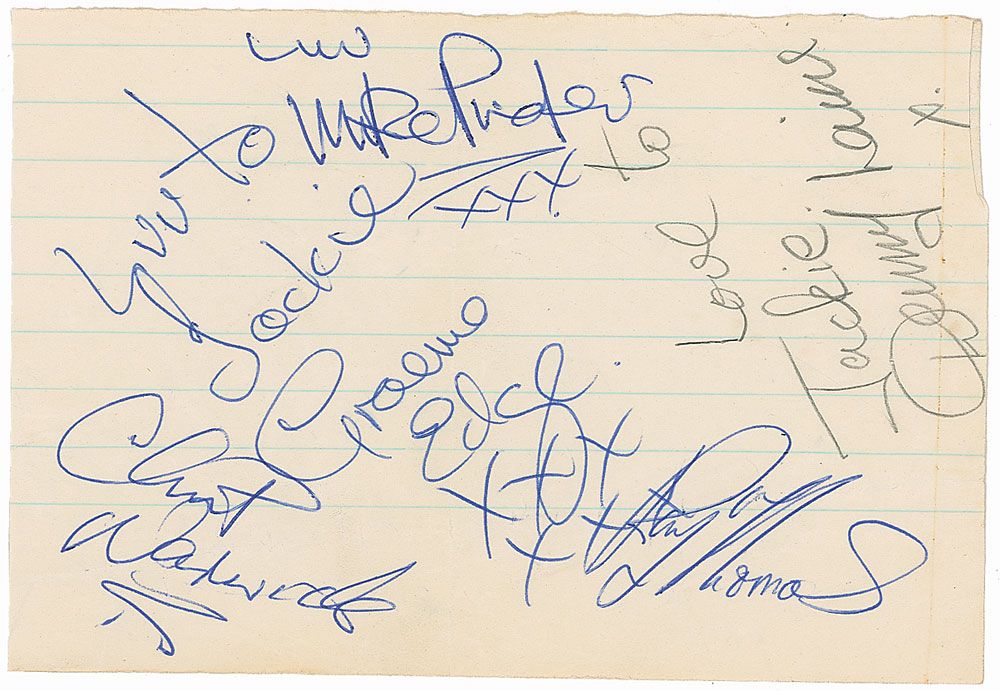 Luv
Mike Pinder
xxx.
Luv to
Jackie
Graeme
Edge
xxxxxx
Clint
Warwick
Ray Thomas
Love to
Jackie.
Denny Laine
x.